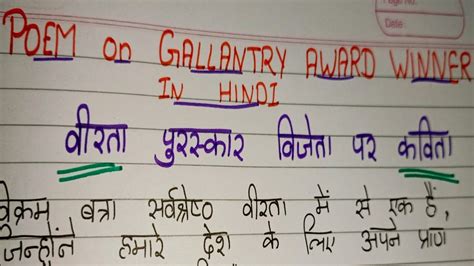 Page No.
Date
POEM on GALLANTRY AWARD WINNER
IN HINDI
वीरता पुरस्कार विजेता पर कविता
विक्रम बत्रा सर्वश्रेष्ठ वीरता में से एक हैं,
जिन्होंने हमारे देश के लिए अपने प्राण